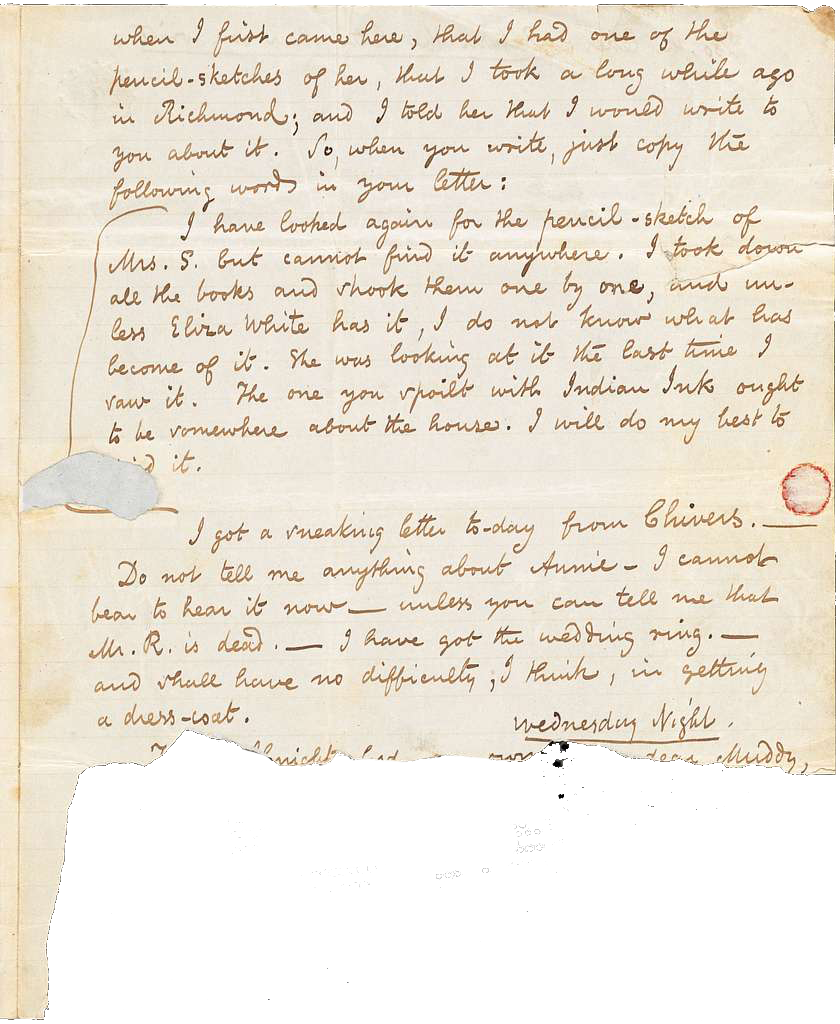 when I first came here, that I had one of the
pencil-sketches of her, that I took a long while ago
in Richmond; and I told her that I would write to
you about it. So, when you write, just copy the
following words in your letter:
I have looked again for the pencil-sketch of
Mrs. S. but cannot find it anywhere. I took down
all the books and shook them one by one, and un-
less Eliza White has it, I do not know what has
become of it. She was looking at it the last time I
saw it. The one you spoilt with Indian Ink ought
to be somewhere about the house. I will do my best to
it.
I got a sneaking letter to-day from Chivers. —
Do not tell me anything about Annie — I cannot
bear to hear it now — unless you can tell me that
Mr. R. is dead. — I have got the wedding ring. —
and shall have no difficulty, I think, in getting
a dress-coat.
Wednesday Night.
own dear Muddy,